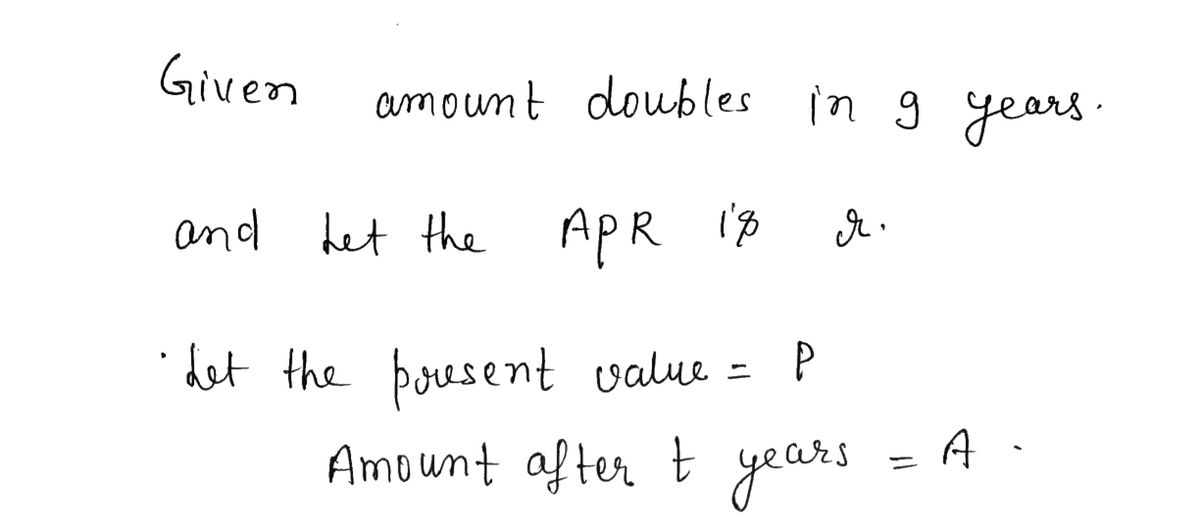 Given amount doubles in 9 years.
and Let the APR is r.
Let the present value = P
Amount after t years = A.